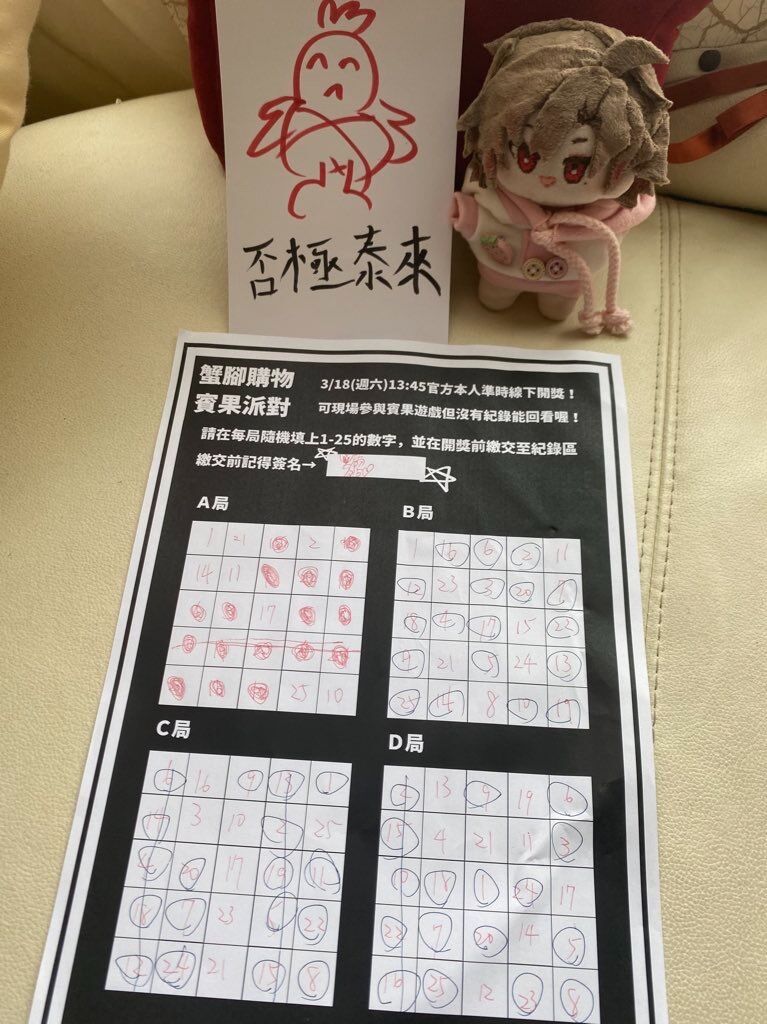 否極泰來
蟹腳購物
賓果派對
3/18(週六)13:45官方本人準時線下開獎！
可現場參與賓果遊戲但沒有紀錄能回看喔！
請在每局隨機填上1-25的數字，並在開獎前繳交至紀錄區
繳交前記得簽名→
A局
1 21 2
14 11
17
25 10
B局
1 16 6 2 11
12 23 3 20
18 4 17 15 22
9 21 5 24 13
25 14 8 10 19
C局
6 16 9 13 1
14 3 10 2 25
4 20 17 19 11
18 7 23 22
12 24 21 15 8
D局
2 13 9 19 6
15 4 21 11 3
10 18 1 24 17
22 7 20 14 5
16 25 12 23 8